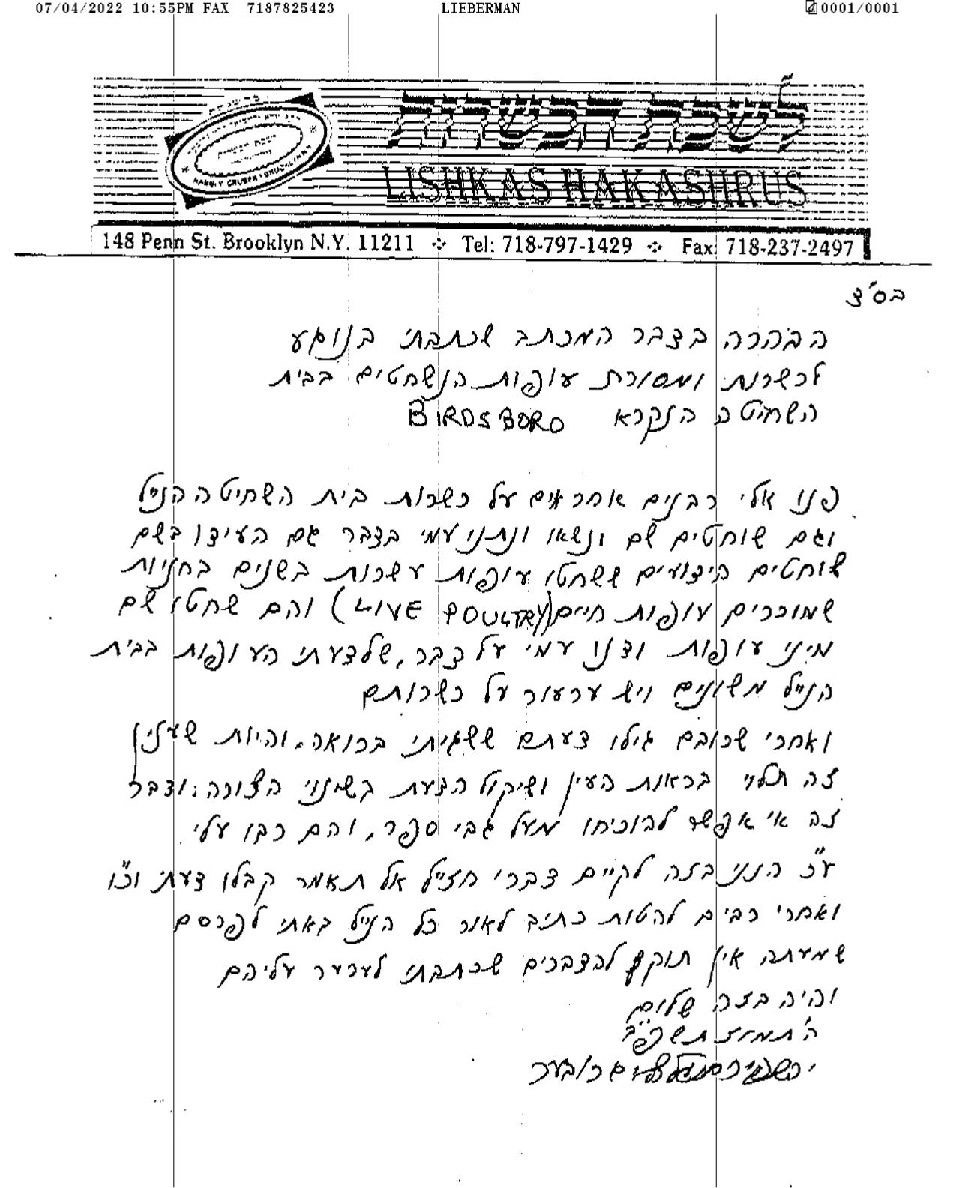 07/04/2022 10:55PM FAX 7187825423 LIEBERMAN 0001/0001
לשכת הכשרות
LISHKAS HAKASHRUS
148 Penn St. Brooklyn N.Y. 11211 Tel: 718-797-1429 Fax: 718-237-2497
בס"ד
הבהרה בדבר המכתב שכתבתי בנוגע
לכשרות ומסורת עופות הנשחטים בבית
השחיטה הנקרא BIRDSBORO
פנו אלי רבנים אחראים על כשרות בית השחיטה הנ"ל
וגם שוחטים שם ונשאו ונתנו עמי בדבר גם העידו בשם
שוחטים הידועים ששחטו עופות עשרות בשנים בחניות
שמוכרים עופות חיים (LIVE POULTRY) והם שחטו שם
מיני עופות ודנו עמי על דבר, שלדעתי העופות בבית
הנ"ל משונים ויש ערעור על כשרותם
ואחרי שרובם גילו דעתם ששגיתי ברואה, והיות שענין
זה תלוי בראות העין ושיקול הדעת בשינוי הצורה, ודבר
זה אי אפשר להוכיחו מעל גבי ספר, והם רבו עלי
ע"כ הנני בזה לקיים דברי חז"ל אל תאמר קבלו דעתי וכו'
ואחרי רבים להטות כתיב לאור כל הנ"ל באתי לפרסם
שמעתה אין תוקף להדברים שכתבתי לערער עליהם
והיה בזה שלום
ה' תמוז תשפ"ב